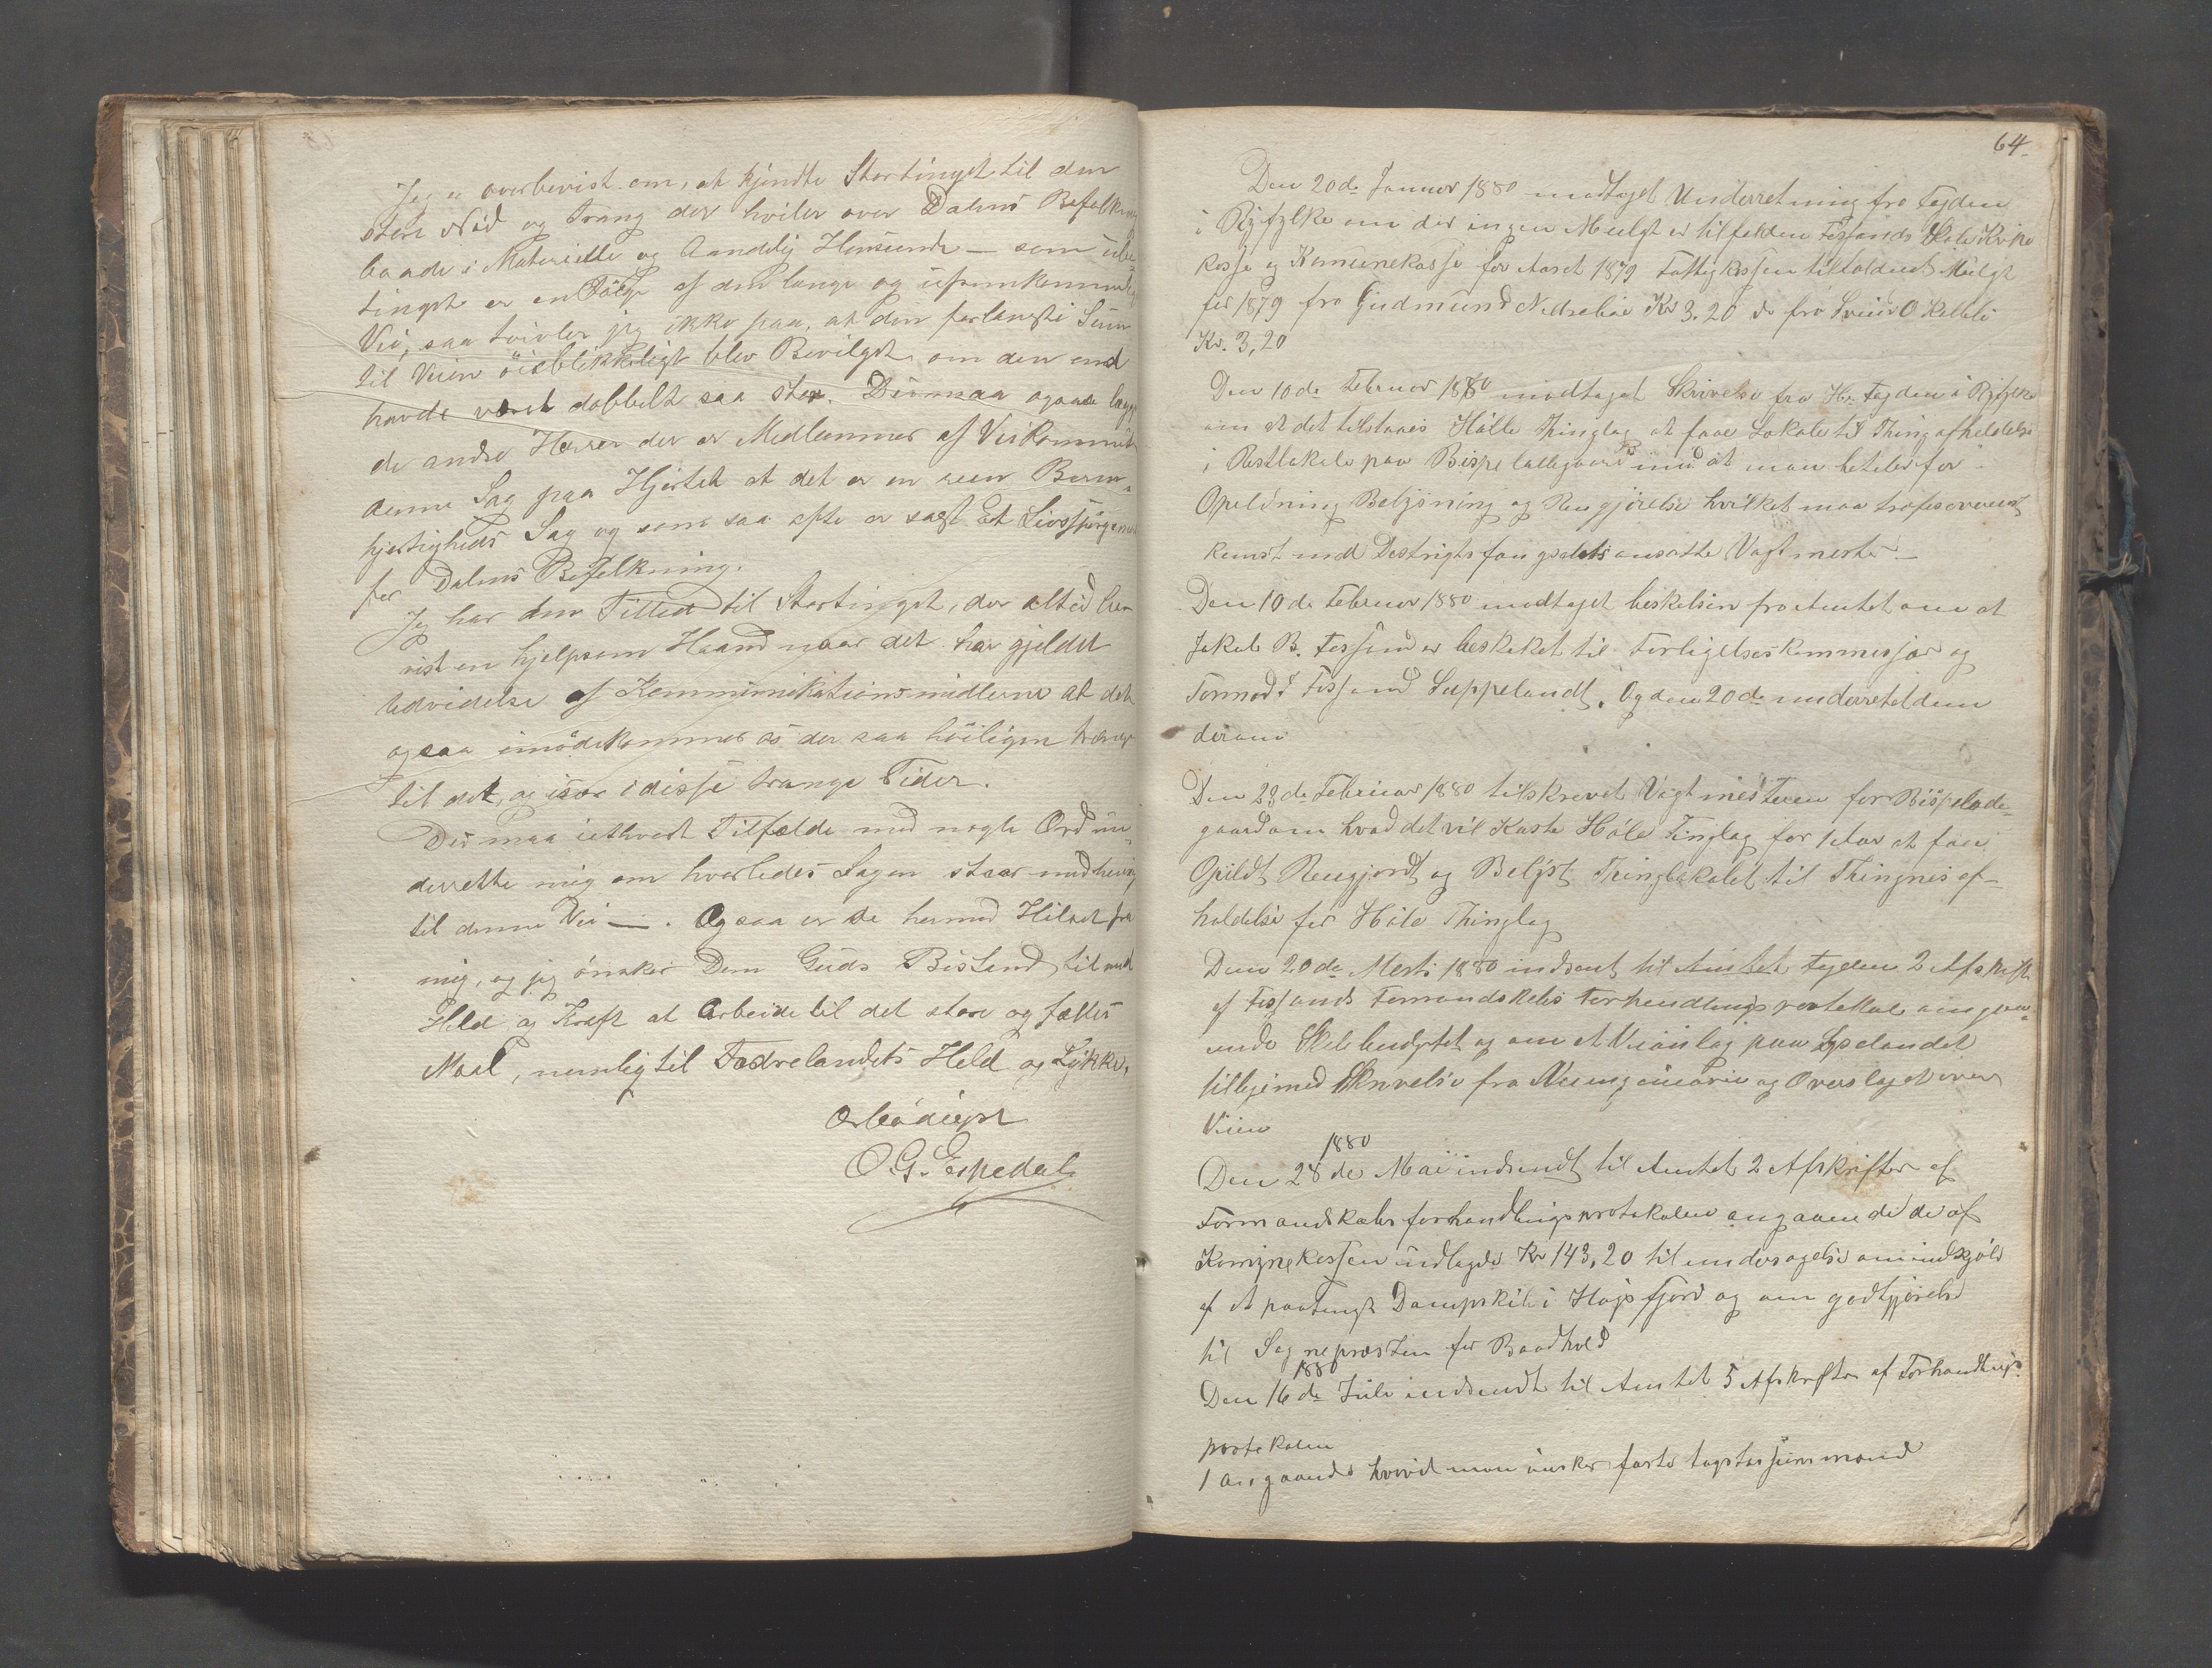 Jeg er overbevist om, at kjendte Stortinget til den
store Nød og Trang der hviler over Dalens Befolkning
baade i Materielle og Aandelig Henseende - som ube-
tinget er en Følge af den lange og ufremkommelige
Vei, saa tvivler jeg ikke paa, at den forlangte Sum
til Veien øieblikkeligt blev Bevilget om den end
havde været dobbelt saa stor. De maa ogsaa lægge
de andre Herrer der er Medlemmer af Veikommiteen
denne Sag paa Hjertet at det er en reen Barm-
hjertigheds Sag og som saa ofte er sagt Et Livsspørgsmaal
for Dalens Befolkning.
Jeg har den Tillid til Stortinget, der altid har
vist en hjelpsom Haand naar det har gjeldet
Udvidelse af Kommunikationsmidlerne at det
ogsaa imødekommer os der saa høiligen trænger
til det, og især i disse trange Tider.
De maa iethvert Tilfælde med nogle Ord un-
derrette mig om hvorledes Sagen staar med hensyn
til denne Vei —. Ogsaa er De hermed Hilset fra
mig, og jeg ønsker Dem Guds Bistand til med
Held og Kraft at Arbeide til det store og fælles
Maal, nemlig til Fædrelandets Held og Lykke.
Ærbødigst
O. G. Espedal
64.
Den 20de Januar 1880 modtaget Underretning fra Fogden
i Ryfylke om der ingen Mulgt er tilfalden Fossands Skole Kirke
kasse og Komunekasse for Aaret 1879 Fattigkassen tilfaldent Mulgt
for 1879 fra Gudmund Nedrebøe Kr 3.20 do fra Svein O
Kr. 3,20
Den 10de Februar 1880 modtaget Skrivelse fra Hr. Fogden i Ryfylke
om at det tilstaaes Høle Thinglag at faae Lokale til Thingafholdelse
i Retslokale paa Bispeladegaard imod at man betaler for
Opeldning Belysning og Rengjørelse hvilket maa træfes overens
komst med Destrigtsfængselets ansatte Vagtmester. —
Den 10de Februar 1880 modtaget beskikelsen fra Amtet om at
Jakob B. Fossand er beskiket til Forligelseskommissær og
Tormod Fossand Suppeleandt. Og den 20de underrettet dem
derom
Den 23de Februar 1880 tilskrevet Vagtmesteren for Bispelade-
gaard om hvad det vil Koste Høle Tinglag for 1 Aar at faae
Opildt Rengjordt og Belyst Thinglokalet til Thingnis af-
holdelse for Høle Thinglag
Den 20de Marts 1880 indsent til Amtet Fogden 2 Afskrift
af Fossands Formandskabs Forhandlings protokol angaa-
ende Skolebudgetet og om et Veianlæg paa
tilligemed Skrivelse fra og Overslaget over
Veien
1880
Den 28de Mai indsendt til Amtet 2 Afskrifter af
Formandskabs forhandlings protokolen angaaende de af
Komunekassen udlagde Kr 143,20 til undersøgelse om indkjøb
af et paatengt Dampskib i Høgsfjord og om godtgjørelse
til Sognepresten for Baadhold
1880
Den 16de Juli indsendt til Amtet 5 Afskrifter af Forhandlings-
protokolen
1 Angaaende hvorvidt man ønsker faste